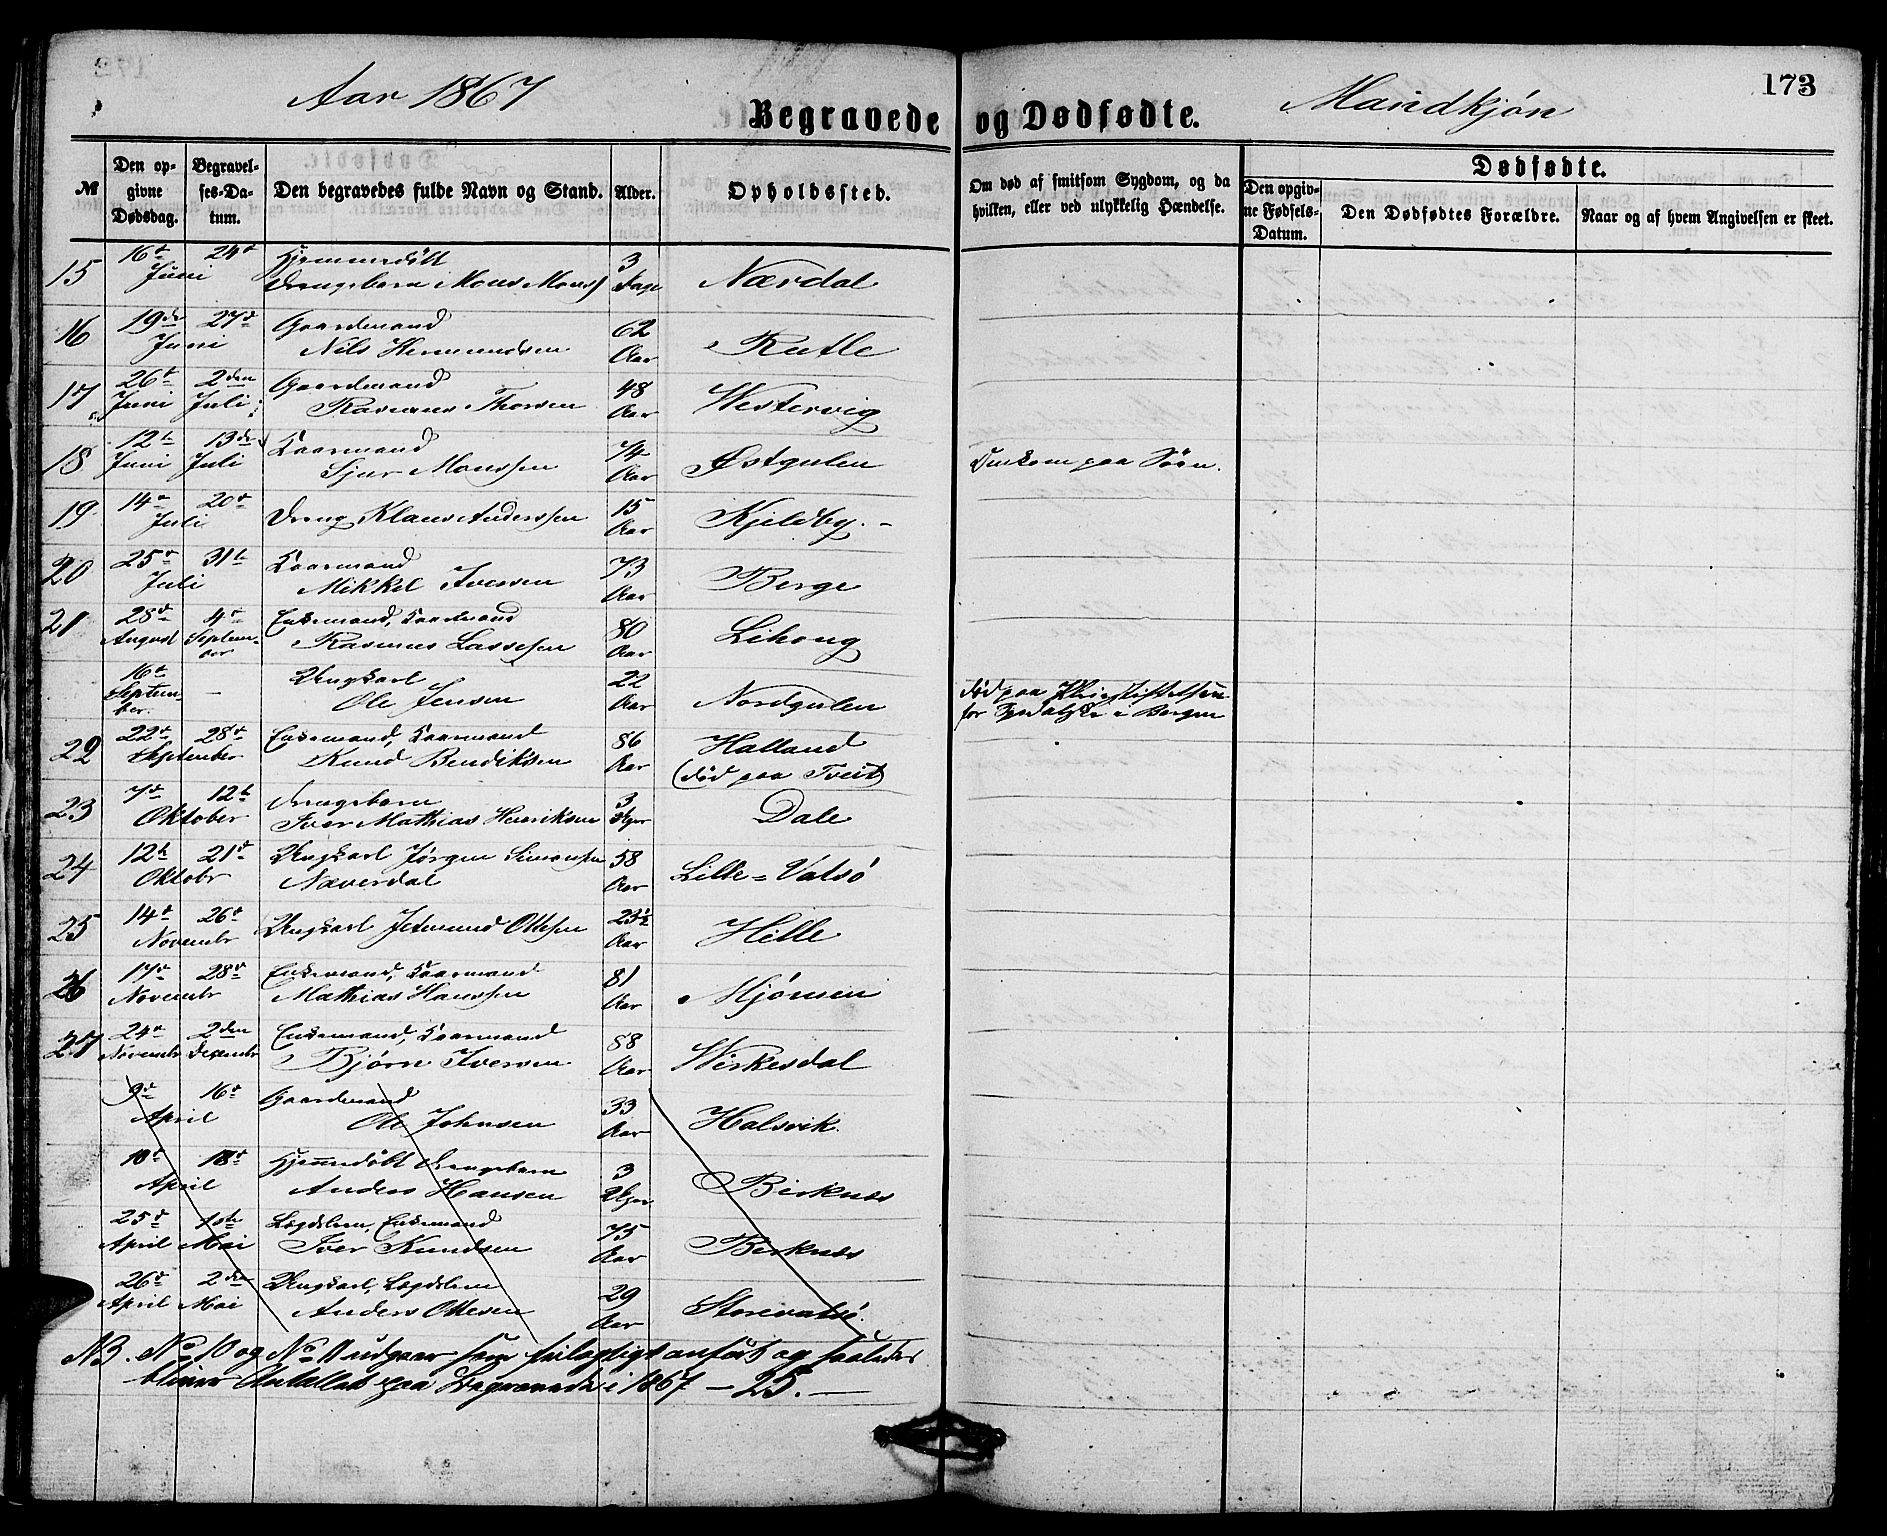 Aar 1867
Begravede og Dødfødte.
Mandkjøn
173
№
Den opgivne Dødsdag.
Begravelses-Datum.
Den begravedes fulde Navn og Stand.
Alder.
Opholdssted.
Om død af smitsom Sygdom, og da hvilken, eller ved ulykkelig Hændelse.
Dødfødte.
Den opgivne Fødsels-Datum.
Den Dødfødtes Forældre.
Naar og af hvem Angivelsen er skeet.
15 16de 24de Juni Hjemmedøbt Drengebarn Mons Monss 3 Dage Nærdal
16 19de 27de Juni Gaardmand Nils Hermundsen 62 Aar Rutle
17 26de Juni 2den Juli Gaardmand Rasmus Thorsen 48 Aar Westervig
18 12te Juni 13de Juli Kaarmand Sjur Monssen 74 Aar Østgulen Omkom paa Søen.
19 14de 20de Juli Dreng Klaus Anderssen 15 Aar Kjeldby.
20 25de 31te Juli Kaarmand Mikkel Iversen 73 Aar Berge
21 28de August 4de September Enkemand, Kaarmand Rasmus Lassesen 80 Aar Lihoug
16de September — Ungkarl Ole Jensen 22 Aar Nordgulen død paa Pleiestiftelsen for Spedalske i Bergen
22 22de 28de September Enkemand, Kaarmand Knud Bendiksen 86 Aar Halland (død paa Tveit)
23 7de 12te Oktober Drengebarn Iver Mathias Henriksen 3 Uger Dale
24 12te 21de Oktobr Ungkarl Jørgen Simonsen Næverdal 58 Aar Lille=Vatsø
25 14de 26de Novembr Ungkarl Jetmund Ottesen 23½ Aar Hille
26 17de 28de Novembr Enkemand, Kaarmand Mathias Hanssen 81 Aar Mjømen
27 24de Novembr 2den Decembr Enkemand, Kaarmand Bjørn Iversen 88 Aar Wirkesdal
9de 16de April Gaardmand Ole Johnsen 33 Aar Halsvik.
10de 18de April Hjemmedøbt Drengebarn Anders Hansen 3 Uger Birknes
25de April 1ste Mai Lægdslem, Enkemand Iver Knudsen 75 Aar Birknes
26de April 2den Mai Ungkarl, Lægdslem Anders Ottesen 29 Aar Storevatsø.
NB. No 10 og No 11 udgaar som feilagtigt anført og saaledes
bliver Antallet paa Begravede i 1867 — 25. —